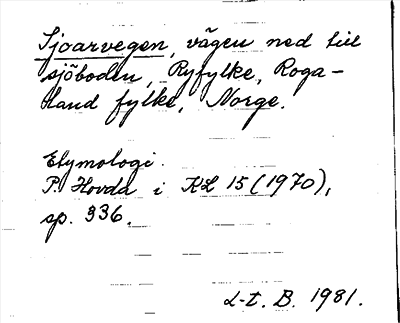 Sjoarvegen, vägen ned till
sjöboden, Ryfylke, Roga-
land fylke, Norge.
Etymologi.
P. Hovda i KL 15 (1970),
sp. 336.
L-t. B. 1981.